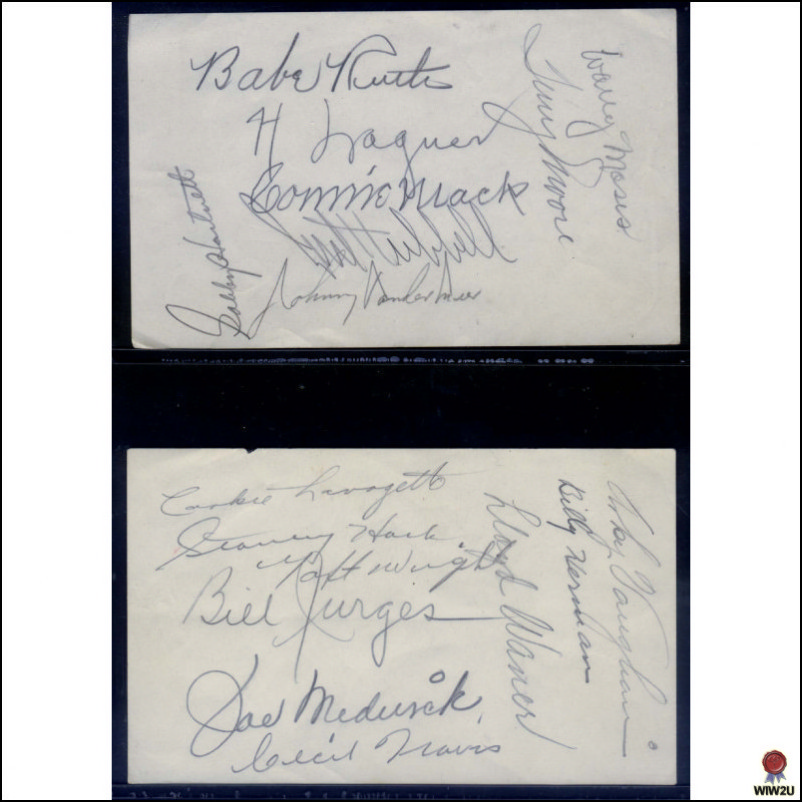 Babe Ruth
H Wagner
Connie Mack
Carl Hubbell
Johnny Vander Meer
Gabby Hartnett
Terry Moore
Wally Moses
Cookie Lavagetto
Stanley Hack
Taft Wright
Bill Jurges
Joe Medwick
Cecil Travis
Lloyd Waner
Billy Herman
Arky Vaughan
WIW2U